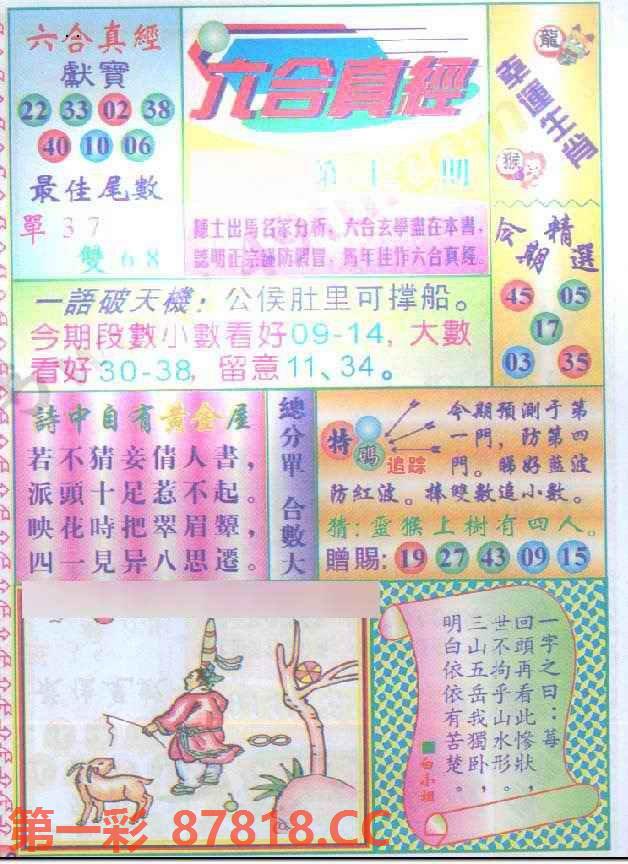 六合真經
獻寶
22 33 02 38
40 10 06
最佳尾數
單 3 7
雙 6 8
六合真經
第 十 期
陳士出馬名家分析，六合玄學盡在本書，
認明正宗謹防親冒，馬年佳作六合真經。
龍
幸運生肖
猴
今期精選
45 05
17
03 35
一語破天機：公侯肚里可撑船。
今期段數小數看好09-14，大數
看好30-38，留意11、34。
詩中自有黃金屋
若不猜妾倩人書，
派頭十足惹不起。
映花時把翠眉顰，
四一見异八思遷。
總分單 合數大
特碼追踪
今期預測于第
一門，防第四
門。睇好藍波
防紅波。捧雙數追小數。
猜：靈猴上樹有四人。
贈賜：19 27 43 09 15
一字之曰：苺
回頭再看此慘狀，
世不拘乎山水形。
三山五岳我獨卧，
明白依依有苦楚。
■白小姐
第一彩 87818.CC